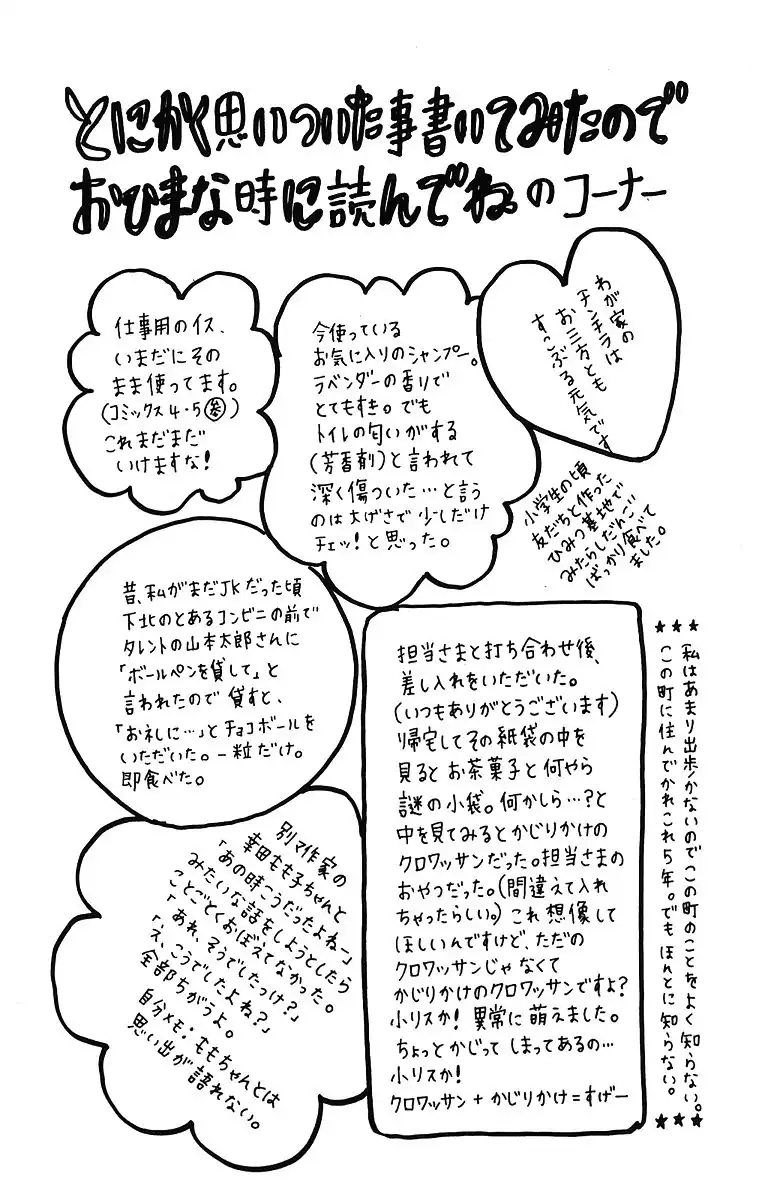 とにかく思いついた事書いてみたので
おひまな時に読んでね。のコーナー
わが家の
チンチラは
お三方とも
すこぶる元気です
今使っている
お気に入りのシャンプー。
ラベンダーの香りで
とてもすき。でも
トイレの匂いがする
(芳香剤)と言われて
深く傷ついた…と言う
のは大げさで少しだけ
チェッ!と思った。
仕事用のイス、
いまだにその
まま使ってます。
(コミックス4・5㊂)
これまだまだ
いけますな!
小学生の頃
友だちと作った
ひみつ基地で
みたらしだんご
ばっかり食べて
ました。
昔、私がまだJKだった頃
下北のとあるコンビニの前で
タレントの山本太郎さんに
「ボールペンを貸して」と
言われたので貸すと、
「お礼に…」とチョコボールを
いただいた。一粒だけ。
即食べた。
★★★
私はあまり出歩かないのでこの町のことをよく知らない。
この町に住んでかれこれ5年。でもほんとに知らない。
★★★
担当さまと打ち合わせ後、
差し入れをいただいた。
(いつもありがとうございます)
帰宅してその紙袋の中を
見るとお茶菓子と何やら
謎の小袋。何かしら…?と
中を見てみるとかじりかけの
クロワッサンだった。担当さまの
おやつだった。(間違えて入れ
ちゃったらしい。)これ想像して
ほしいんですけど、ただの
クロワッサンじゃなくて
かじりかけのクロワッサンですよ?
小リスか!異常に萌えました。
ちょっとかじってしまってあるの…
小リスか!
クロワッサン+かじりかけ=すげー
別マ作家の
幸田もも子ちゃんと
「あの時こうだったよねー」
みたいな話をしようとしたら
ことごとくおぼえてなかった。
「あれ、そうでしたっけ?」
「え、こうでしたよね?」
全部ちがうよ。
自分メモ:ももちゃんとは
思い出が語れない。